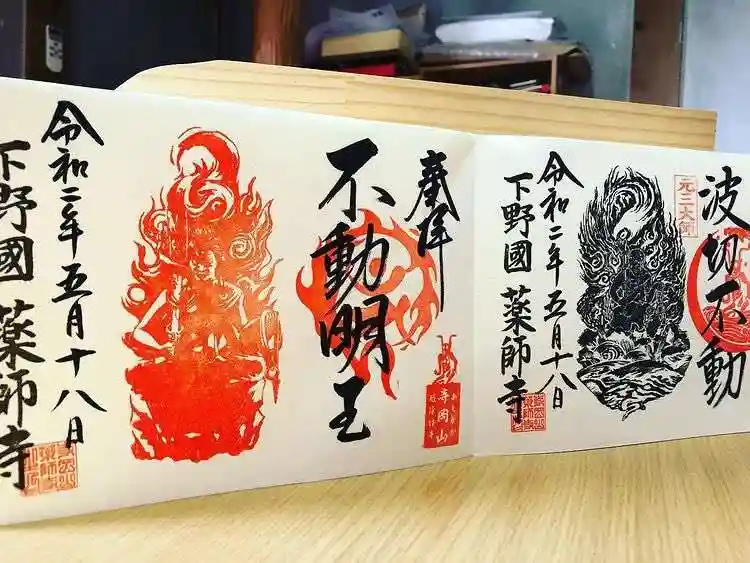 波切不動
元三大師
令和二年五月十八日
下野國 薬師寺
奉拝
不動明王
寺岡山
令和二年五月十八日
下野國 薬師寺